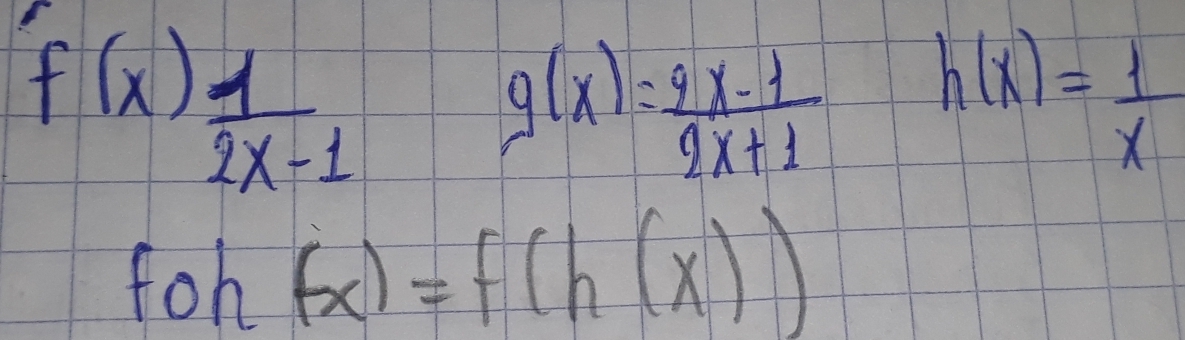 f(x) 1/(2x-1) g(x)=(2x-1)/(2x+1) h(x)=1/x
foh (x)=f(h(x))